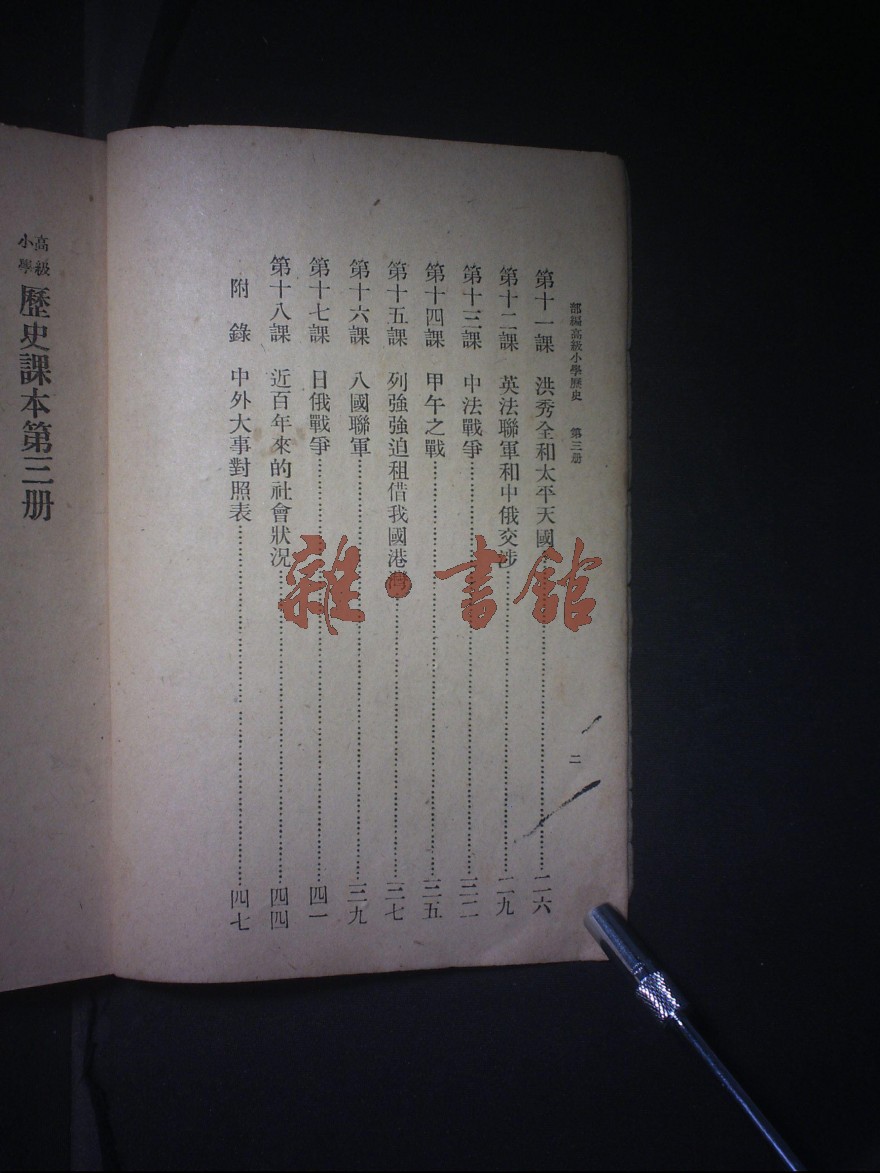 部編高級小學歷史　第三册
二
第十一課　洪秀全和太平天國……二六
第十二課　英法聯軍和中俄交涉……二九
第十三課　中法戰爭……三二
第十四課　甲午之戰……三五
第十五課　列強強迫租借我國港灣……三七
第十六課　八國聯軍……三九
第十七課　日俄戰爭……四一
第十八課　近百年來的社會狀況……四四
附錄　中外大事對照表……四七
高級小學歷史課本第三册
雜·書館